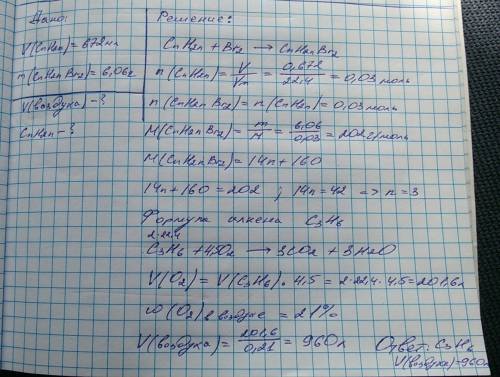 Дано:
V(CnH2n)=672мл
m(CnH2nBr2)=6,06г
V(воздуха)-?
CnH2n-?
Решение:
CnH2n + Br2 → CnH2nBr2
n(CnH2n)= V/Vm = 0,672/22,4 = 0,03 моль
n(CnH2nBr2)= n(CnH2n)= 0,03 моль
M(CnH2nBr2)= m/n = 6,06/0,03 = 202 г/моль
M(CnH2nBr2)= 14n+160
14n+160=202 ; 14n=42 => n=3
Формула алкена C3H6
2·22,4
C3H6 + 4,5O2 → 3CO2 + 3H2O
V(O2)= V(C3H6)·4,5= 2·22,4·4,5=201,6л
ω(O2) в воздухе = 21%
V(воздуха)= 201,6/0,21 = 960л
Ответ: C3H6
V(воздуха)=960л